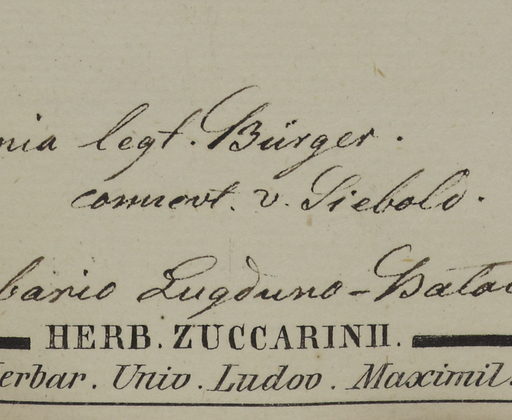 nia legt. Bürger.
comm​unt. v. Siebold.
bario Lugduno-Batav
HERB. ZUCCARINII.
Herbar. Univ. Ludov. Maximil.